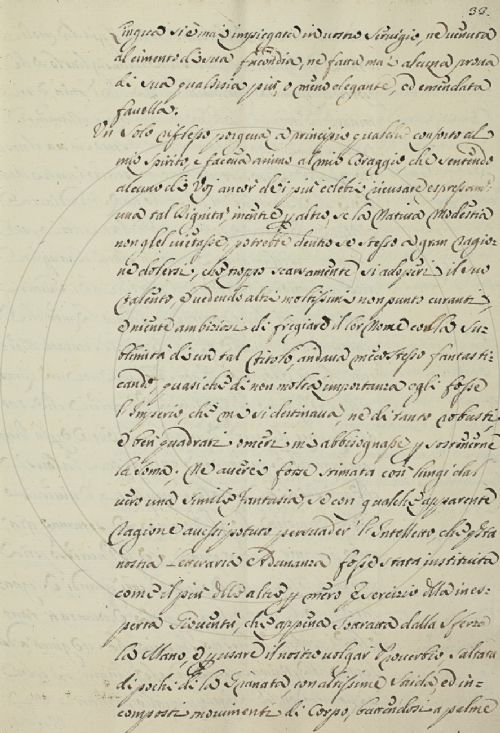 32.
Lingua si è mai impiegata in vostro Servigio, ne venuta
al cimento di sua Facondia, ne fatta mai alcuna prova
di sua qualsisia più, o meno elegante, ed emendata
favella.
Un solo riflesso porgeva a principio qualche conforto al
mio spirito, e faceva animo al mio Coraggio, che sentendo
alcuno di Voj ancor de i più celebri ricusare espressam.e
una tal Dignità, mentre p altro, se la Natura Modestia
non gliel vietasse, potrebbe dentro se stesso a gran ragio-
ne dolersi, che troppo scarsamente si adopri il suo
Talento, e vedendo altri moltissimi non punto curanti,
e niente ambiziosi di fregiare il lor Nome colla Su-
blimità di un tal Titolo, andava meco stesso fantasti-
cando, quasi che di non molta importanza egli fosse
l'Imperio che me si destinava ne di tanto robusti,
e ben quadrati omeri mi abbisognasse p sostenerne
la soma. Ne averei forse stimata così lungi dal
vero una simile fantasia, se con qualche apparente
ragione avessi potuto persuader l'Intelletto che q.sta
nostra Letteraria Adunanza fosse stata instituita
come il più delle altre p mero Esercizio della ines-
perta Gioventù, che appena sottratta dalla sferza
la Mano, e p usare il nostro volgar Proverbio saltata
di pochi dì la Granata, con altissime Strida ed in-
composti movimenti di Corpo, battendosi a palme